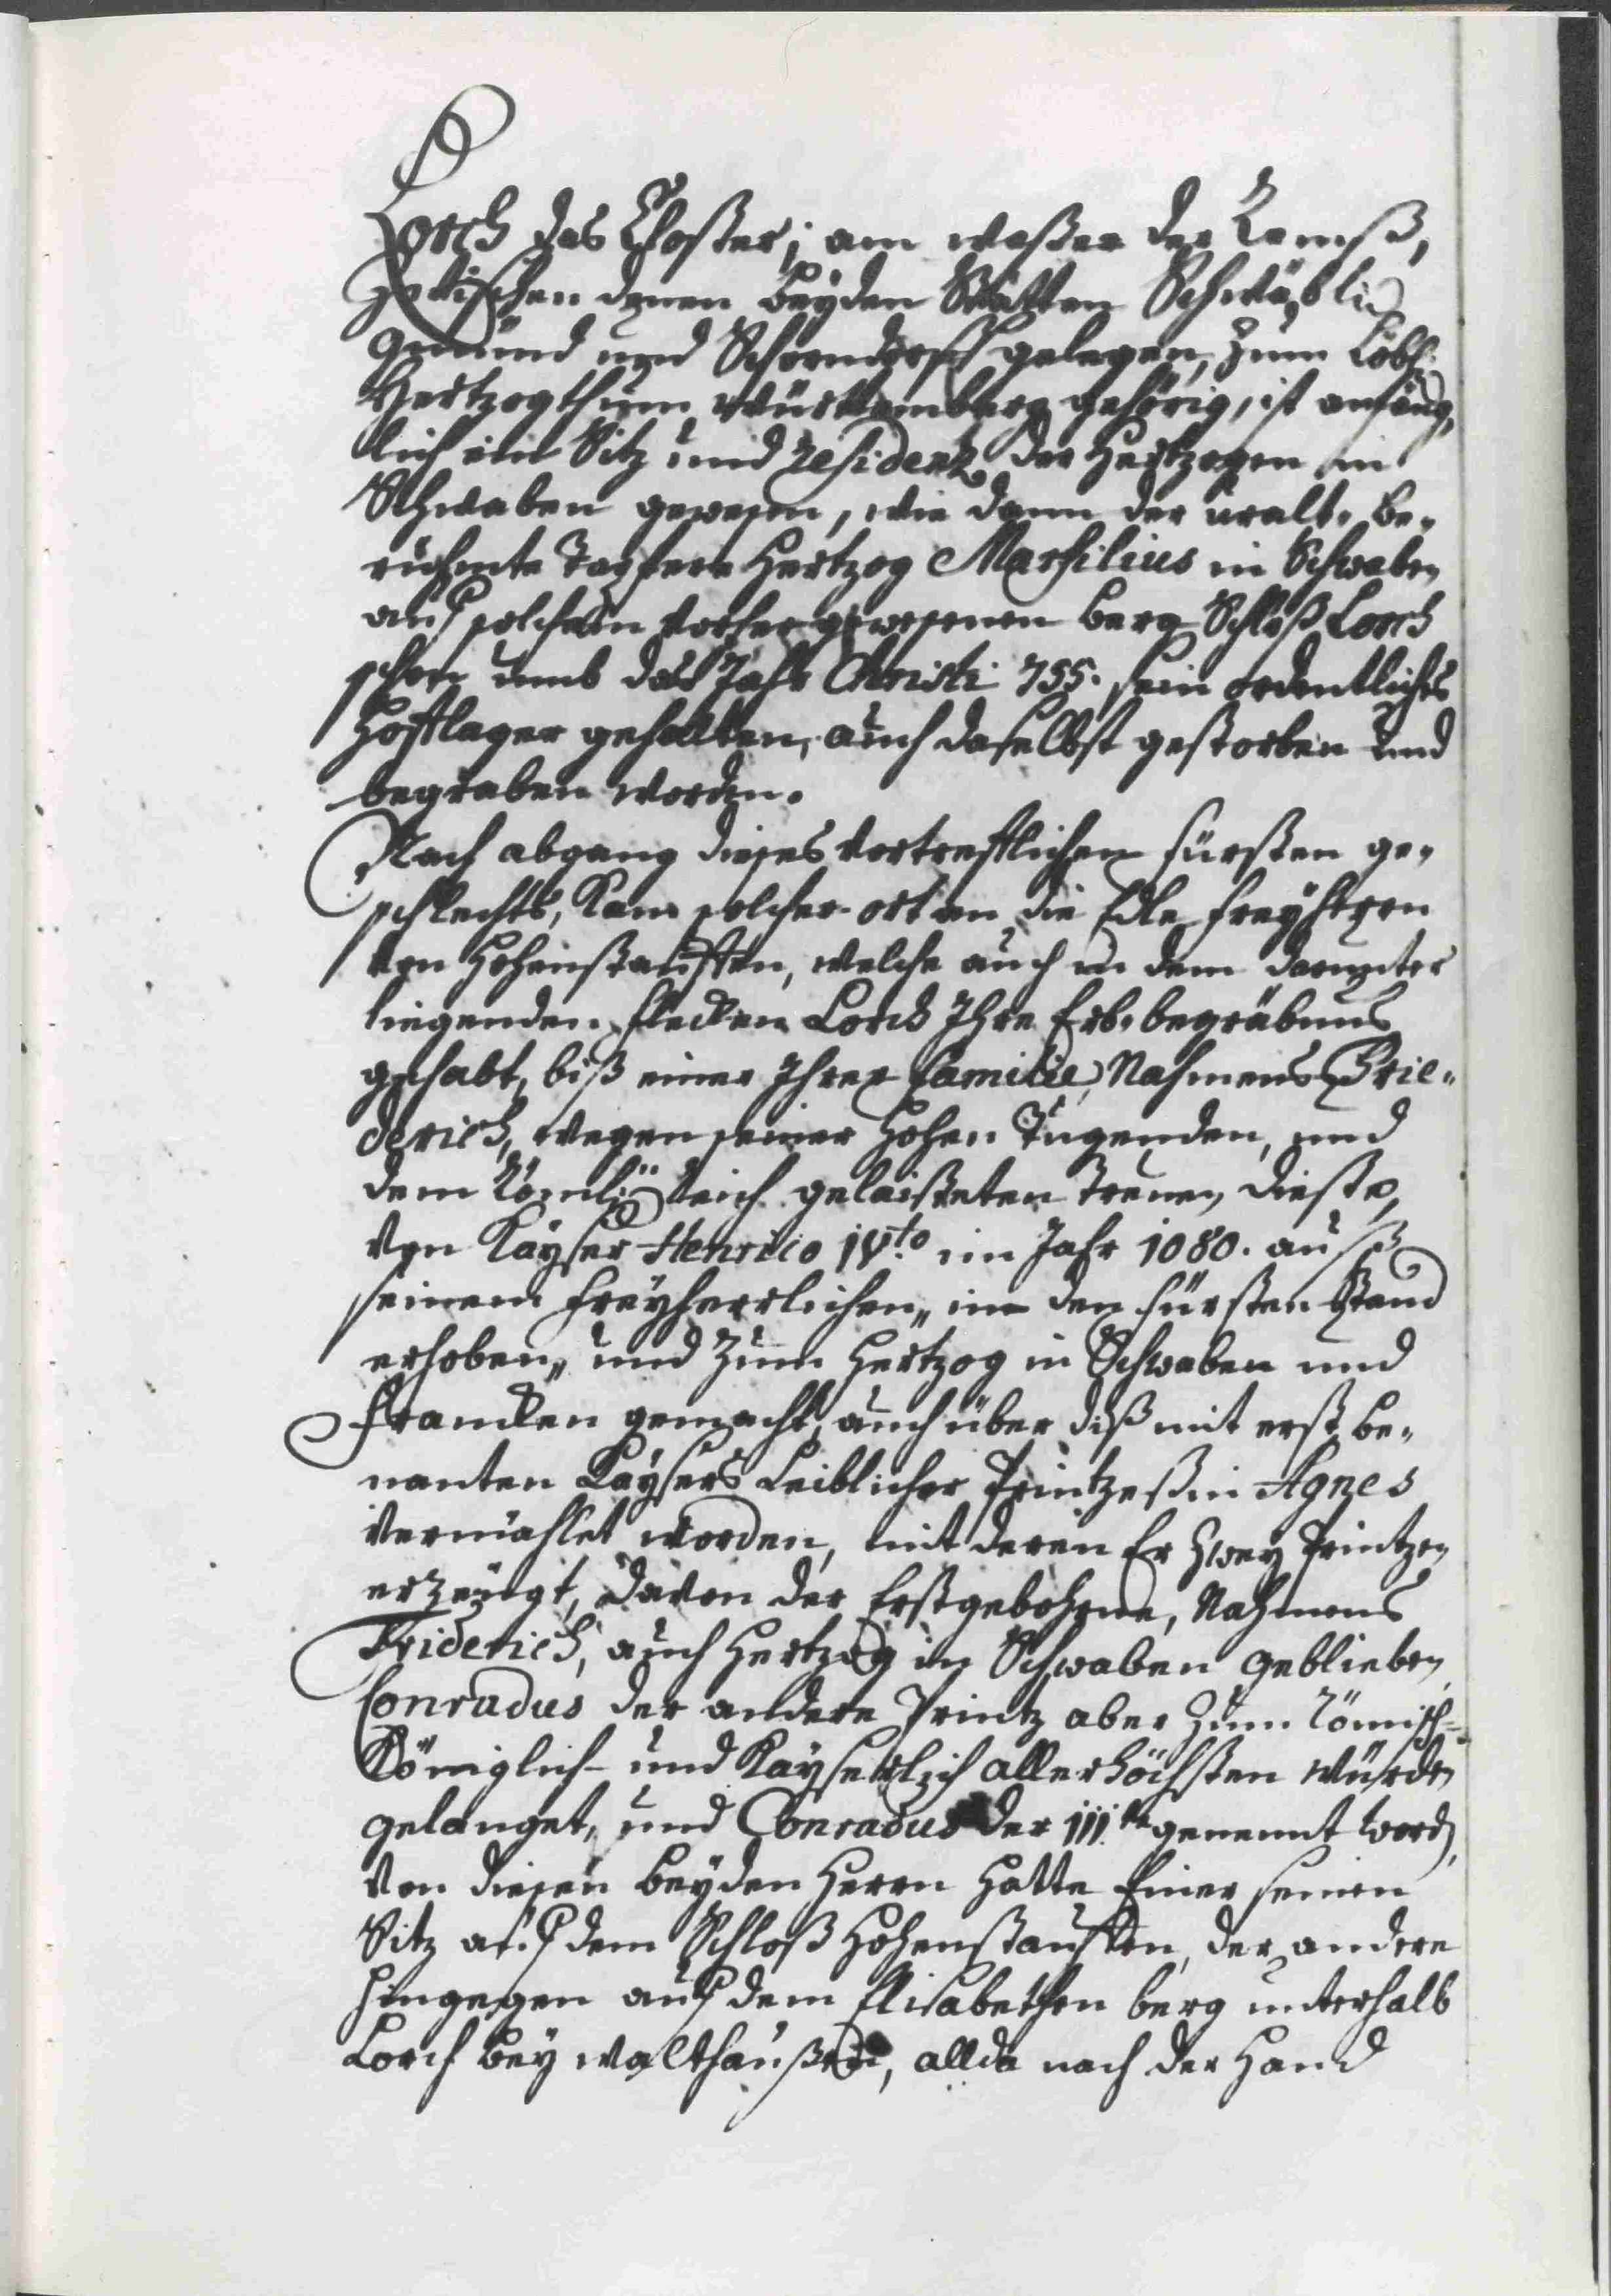 Lorch das Closter; am waßer der Remß,
zwischen denen beyden Stätten Schwäbisch
Gmünd und Schorndorff gelegen, zum Löbl:
Hertzogthum Württemberg gehörig, ist anfäng„
lich ein Sitz und residentz der Hertzogen in
Schwaben gewesen, wie dann der uralt„ be„
rühmte Tapfere Hertzog Marsilius in Schwaben
auf solchem vorher gewesenen Berg Schloß Lorch
schon umb das Jahr Christi 755. sein ordentliches
Hofflager gehalten, auch daselbst gestorben und
begraben worden.
Nach abgang dieses vortrefflichen fürsten ge„
schlechts, Kam solcher ort an die Edle freyherrn
von Hohenstauffen, welche auch in dem darunter
liegenden flecken Lorch Ihre Erb„begräbnus
gehabt, biß einer Ihrer familie, Nahmens Frie„
derich, wegen seiner Hohen Tugenden, und
dem Römisch: Reich gelaisteten treuen dienste,
von Kayser Henrico IV.to im Jahr 1080. auß
seinem freyherrlichen„ in den fürsten Stand
erhoben„ und zum Hertzog in Schwaben und
francken gemacht, auch über diß mit erst be„
nanten Kaysers Leiblicher Printzeßin Agnes
vermählet worden, mit deren Er zwey Printzen
erzeugt, davon der Erstgebohrne, Nahmens
Friderich, auch Hertzog in Schwaben geblieben,
Conradus der andere Printz aber zum Römisch=
Königlich- und Kayserlich allerhöchsten würden
gelanget, und Conradus der III.te genennt word,
von diesen beyden Herrn hatte Einer seinen
Sitz auf dem Schloß Hohenstauffen, der andere
hingegen auf dem Elisabethen berg unterhalb
Lorch bey walthaußen, allda nach der Hand